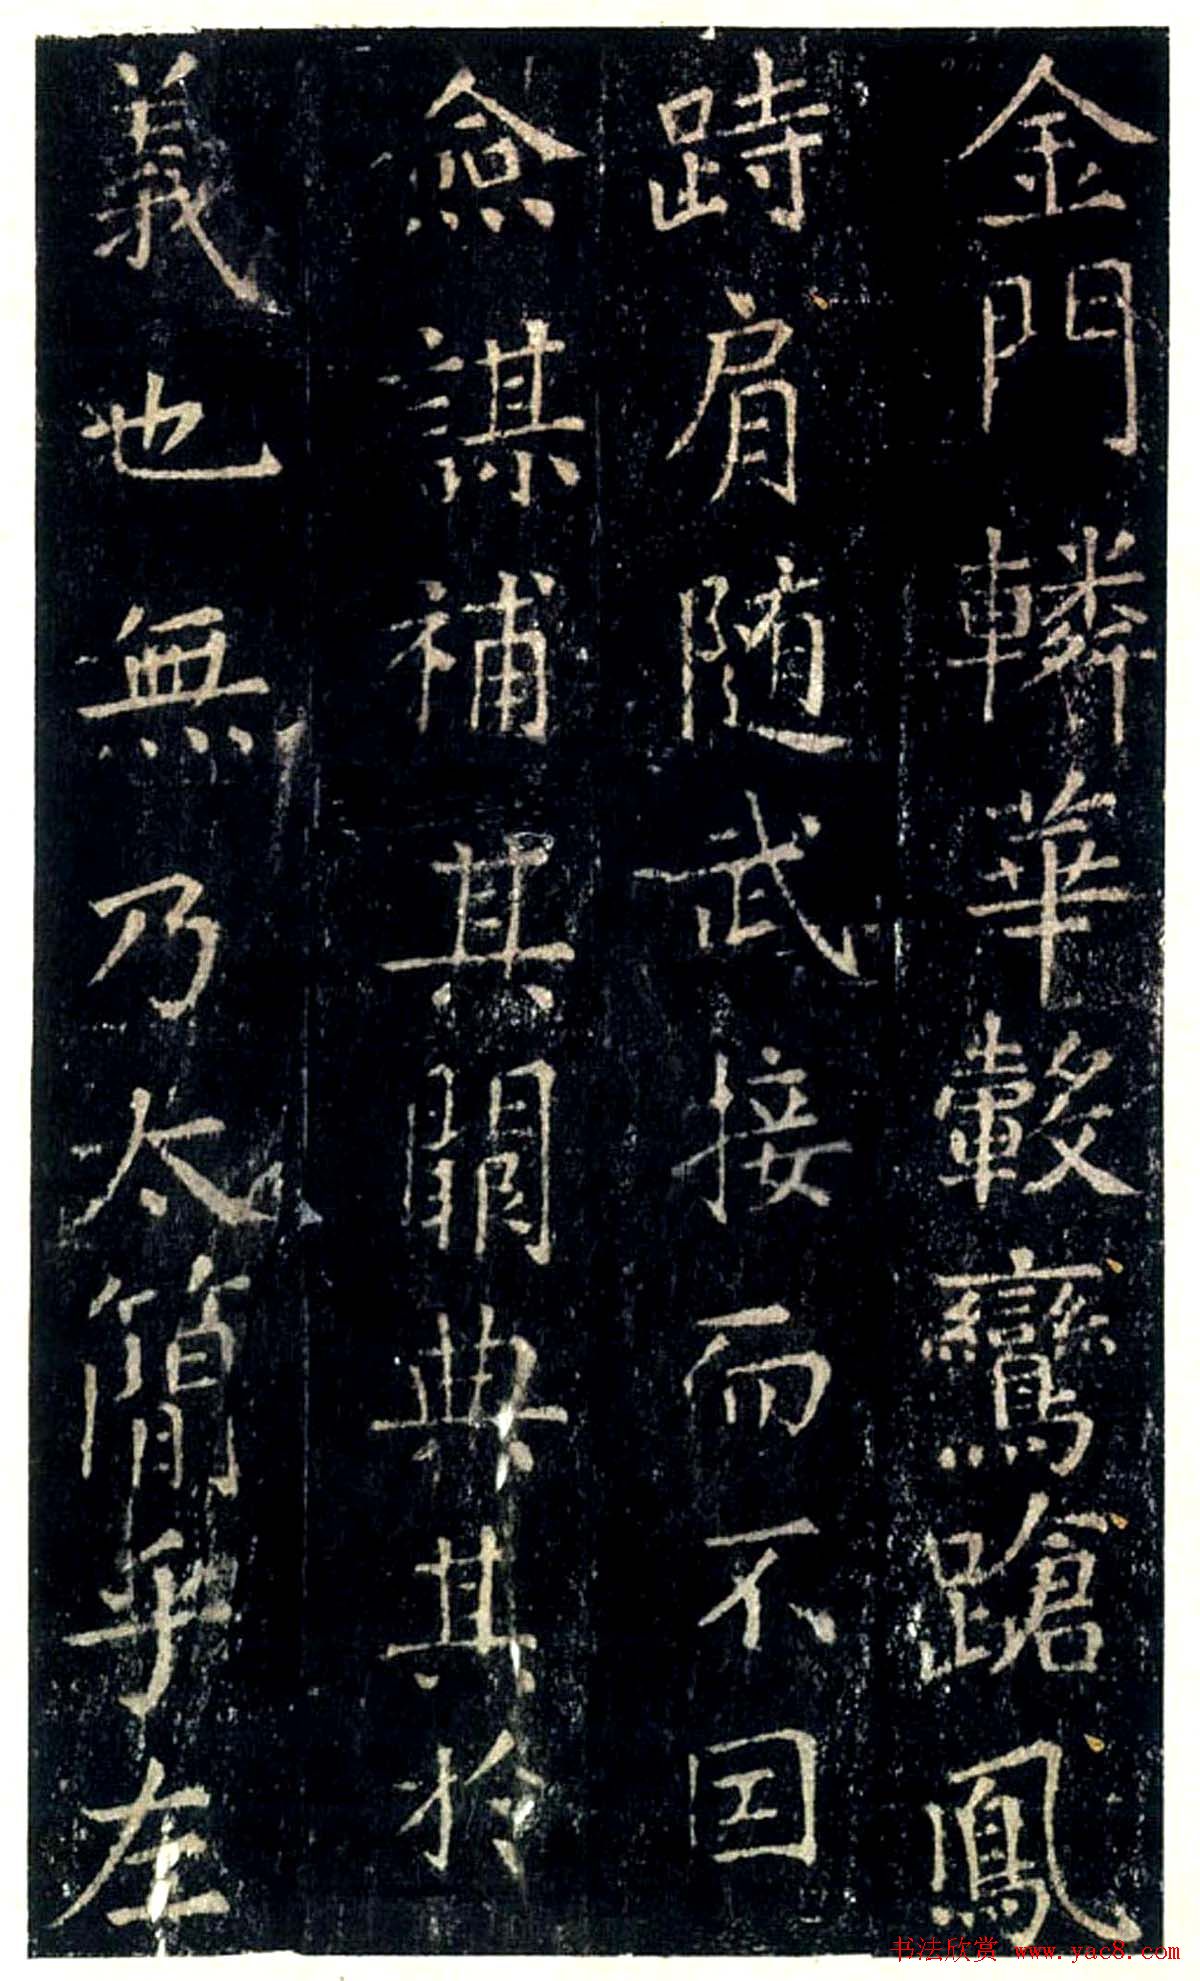 金門轔華轂鸞蹌鳳
跱肩随武接而不因
僉謀補其闕典其於
義也無乃太簡乎左
书法欣赏 www.yac8.com